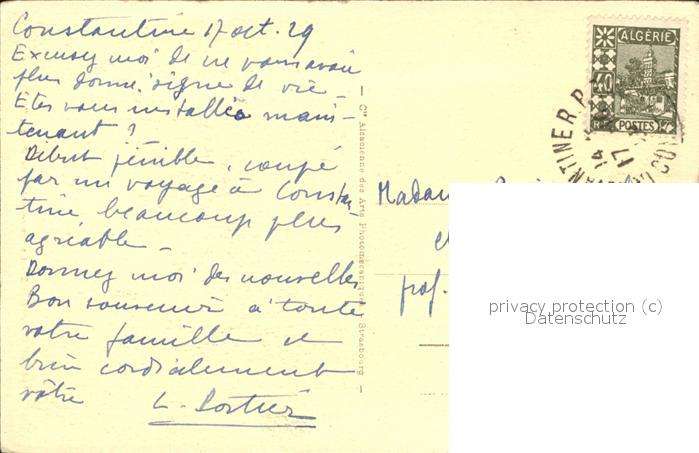 Constantine 17 oct. 29
Excusez moi de ne vous avoir
plus donné signe de vie –
Etes vous installés main-
tenant ?
Début pénible, coupé
par un voyage à Constan
tine, beaucoup plus
agréable –
Donnez moi des nouvelles
Bon souvenir à toute
votre famille et
bien cordialement
vôtre
L.
– Cie Alsacienne des Arts Photomécaniques, Strasbourg –
ALGÉRIE
POSTES
17
Madame
et
prof.
privacy protection (c)
Datenschutz